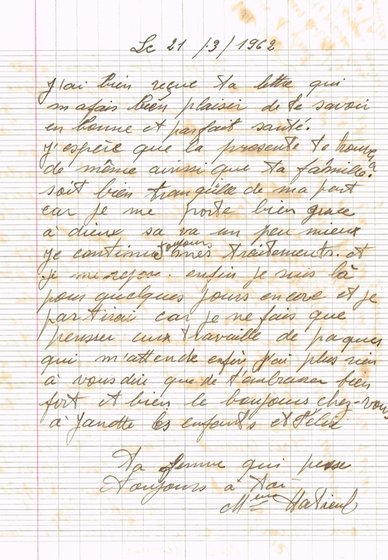 Le 21/3/1962
j'ai bien reçue ta lettre qui
m'afais bien plaisir de te savoir
en bonne et parfait santé.
j'espère que la presente te trouve
de même ainsi que ta famille
soit bien tranquille de ma part
car je me porte bien grace
à dieux sa va un peu mieux
je continue toujours mes traitements. et
je me repose. enfin je suis là
pour quelques jours encore et je
partirai car je ne fais que
penser aux travaille de paques
qui m'attende enfin j'ai plus rien
à vous dire que de t'embrasser bien
fort et bien le boujours chez-vous
à Janette les enfants et Félix
ta femme qui pense
toujours à toi
Mme